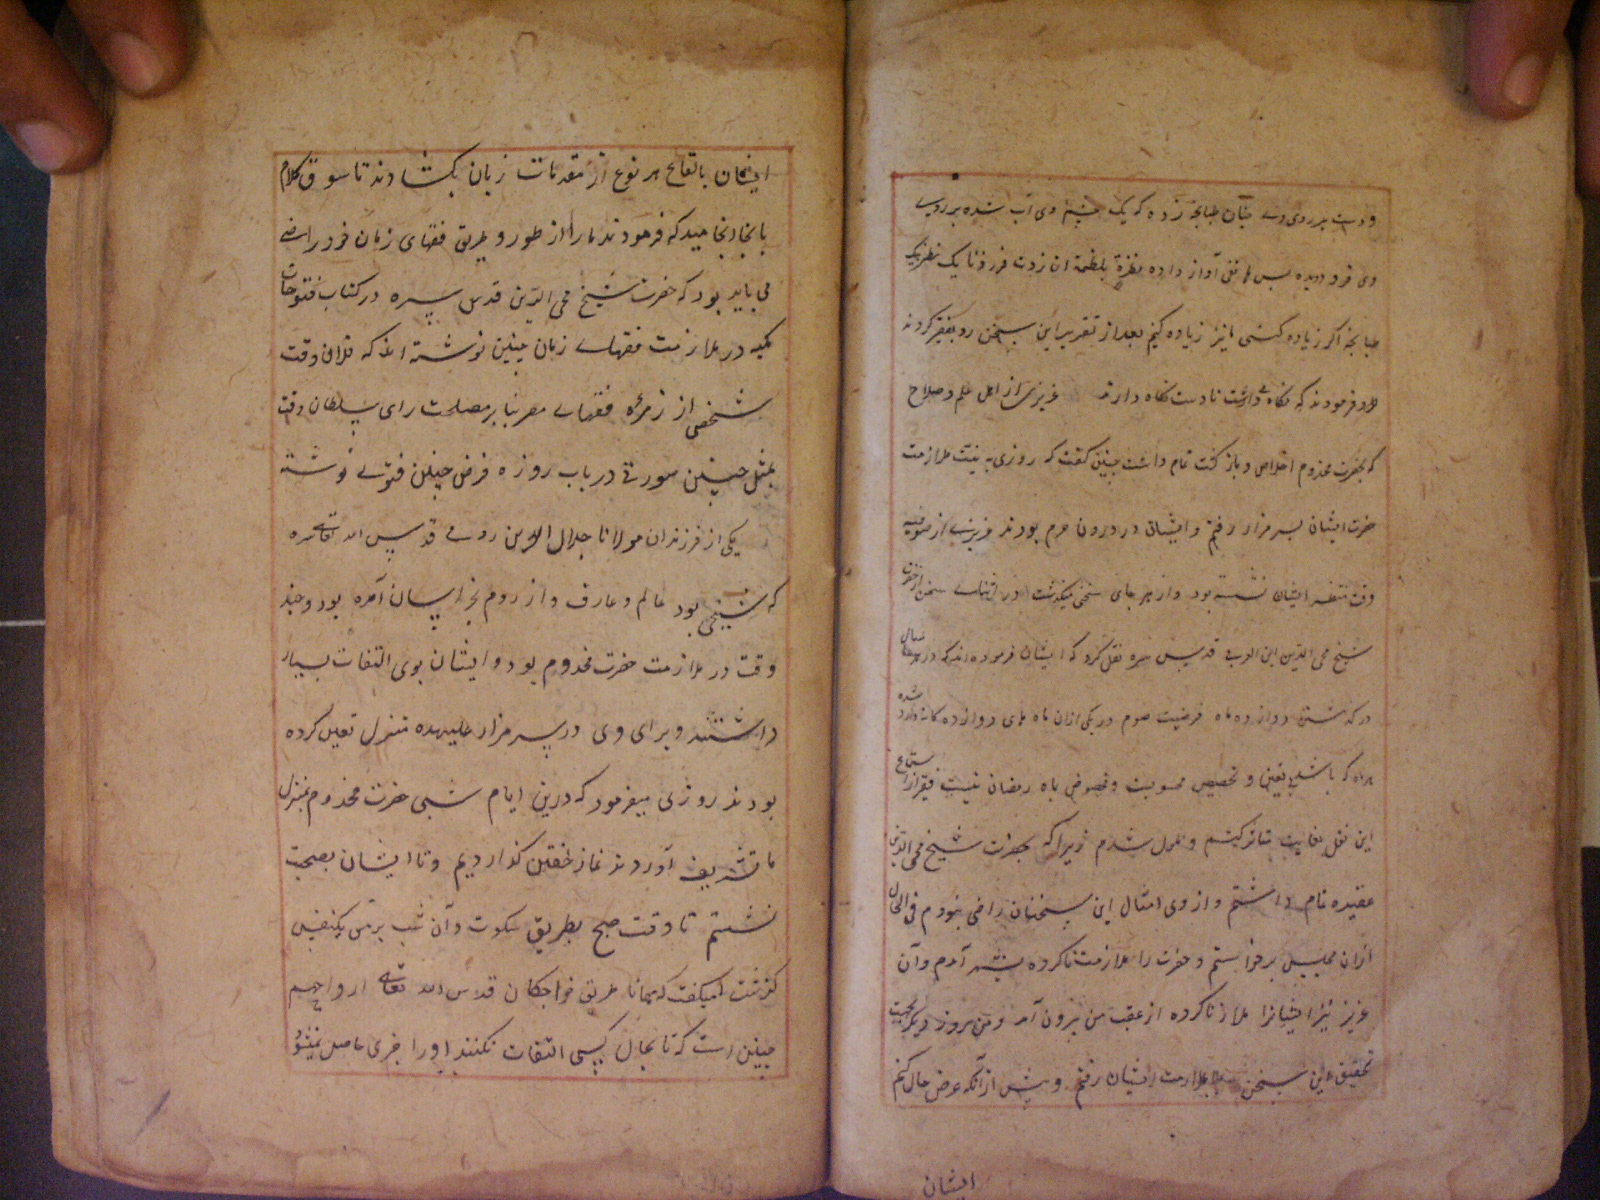 و دست بر روی وی چنان طبانچه زده که یک چشم وی آب شده بر روی
وی فرو دویده پس هاتفی آواز داده نظرة بلطمة ان زدت فزدنا یک نظر یک
طبانچه اگر زیاده کنی ما نیز زیاده کنیم بعد از تقریر این سخن رو بفقیر کردند
و فرمودند که نگاه داشت تا دست نگاه دارند عزیزی از اهل علم و صلاح
که بحضرت مخدوم اخلاص و بازگشت تمام داشت چنین گفت که روزی به نیت ملازمت
حضرت ایشان بسر مزار رفتم و ایشان در درون حرم بودند عزیزی از صوفیه
وقت منتظر ایشان نشسته بود و از هر جای سخنی میگذشت در اثنای سخن از حضرت
شیخ محی الدین ابن العربی قدس سره نقل کرد که ایشان فرموده اند که در هر سال
در گذشتن دوازده ماه فرضیت صوم در یکی ازان ماه های دوازده گانه وارد شده
هر ماه که باشد تعیین و تخصیص محسوبیت و مخصوص بماه رمضان نیست فقیر از استماع
این نقل بغایت متاثر گشتم و ملول شدم زیرا که بحضرت شیخ محی الدین
عقیده تمام داشتم و از وی امثال این سخنان راضی نبودم فی الحال
ازان مجلس برخواستم و حضرت را ملازمت ناکرده بشهر آمدم و آن
عزیز نیز ایشانرا ملاز ناکرده از عقب من بیرون آمد و من روز دیگر بجهت
تحقیق این سخن بملازمت ایشان رفتم و پیش از آنکه عرض حال کنم
ایشان
ایشان باتفاتح هر نوع از مقدمات زبان بگشادند تا سوق کلام
بانجا انجامید که فرمودند مارا از طور و طریق فقهای زمان خود راضی
می باید بود که حضرت شیخ محی الدین قدس سره در کتاب فتوحات
مکیه در ملازمت فقهای زمان چنین نوشته اند که فلان وقت
شخصی از زمره فقهای مصر بنا بر مصلحت رای سلطان وقت
بمثل چنین صورتی در باب روزه فرض چنین فتوی نوشته
یکی از فرزندان مولانا جلال الدین رومی قدس الله تعالی سره
که شیخی بود عالم و عارف و از روم بخراسان آمده بود و چند
وقت در ملازمت حضرت مخدوم بود و ایشان بوی التفات بسیار
داشتند و برای وی در سر مزار علیهده منزل تعین کرده
بودند روزی میفرمود که درین ایام شبی حضرت مخدوم بمنزل
ما تشریف آوردند نماز خفتن گذاردیم و تا ایشان بصحبت
نشستم تا وقت صبح بطریق سکوت و آن شب بر من یکنفس
گذشت میگفت که همانا طریق خواجگان قدس الله تعالی ارواحهم
چنین است که تا بحال کسی التفات نکنند او را خبری حاصل نمیشود